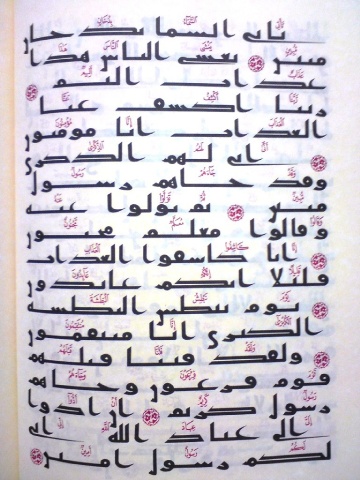 تاتى السما بدخان
مبين يغشى الناس هذا
عذاب اليم
ربنا اكشف عنا
العذاب انا مومنون
انى لهم الذكرى
وقد جاهم رسول
مبين ثم تولوا عنه
وقالوا معلم مجنون
انا كاشفوا العذاب
قليلا انكم عايدون
يوم نبطش البطشه
الكبرى انا منتقمون
ولقد فتنا قبلهم
قوم فرعون وجاهم
رسول كريم ان ادوا
الى عباد الله انى
لكم رسول امين